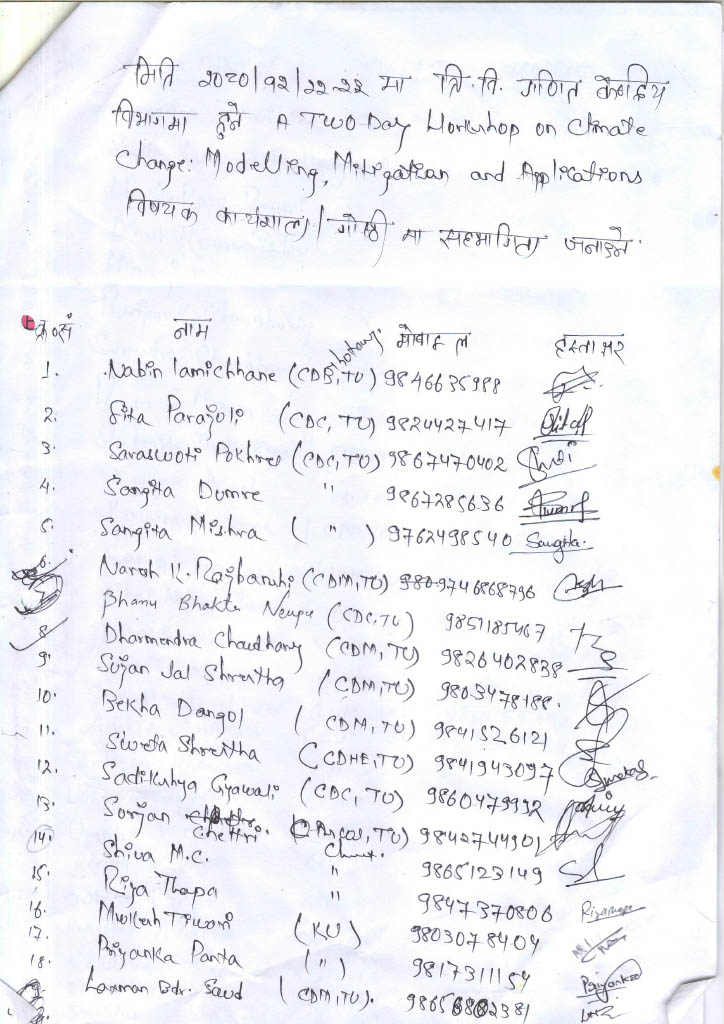 मिति २०२०/१२/२२-२३ मा त्रि.वि. गणित केन्द्रिय
विभागमा हुने A Two Day Workshop on Climate
Change: Modelling, Mitigation and Applications
विषयक कार्यशाला/गोष्ठी मा सहभागिता जनाउने.
क्र०सं नाम मोबाइल हस्ताक्षर
1. Nabin lamichhane (CDB, TU) 9846635988
2. Sita Parajuli (CDC, TU) 9824427417
3. Saraswoti Pokhrel (CDC, TU) 9867470402
4. Sangita Dumre " 9867285636
5. Sangita Mishra ( " ) 9762498540 Sangita
6. Naresh K. Rajbanshi (CDM, TU)
Bhanu Bhakta Neupane (CDC, TU) 9851185467
8 Dharmendra Chaudhary (CDM, TU) 9826402838
9. Sujan Lal Shrestha (CDM, TU) 9803478188.
10. Bekha Dangol ( CDM, TU) 9841526121
11. Sweta Shrestha (CDHE, TU) 9841943097
12. Sadikshya Gyawali (CDC, TU) 9860479992
13. Sorjan Chettri. 9842744901
14. Shiva M.C. " 9865123149
15. Riya Thapa " 9847370806
16. Mukesh Tiwari (KU) 9803078404
17. Priyanka Panta ( " ) 9817311154 Priyanka
18. Laxman Bdr. Saud (CDM, TU).